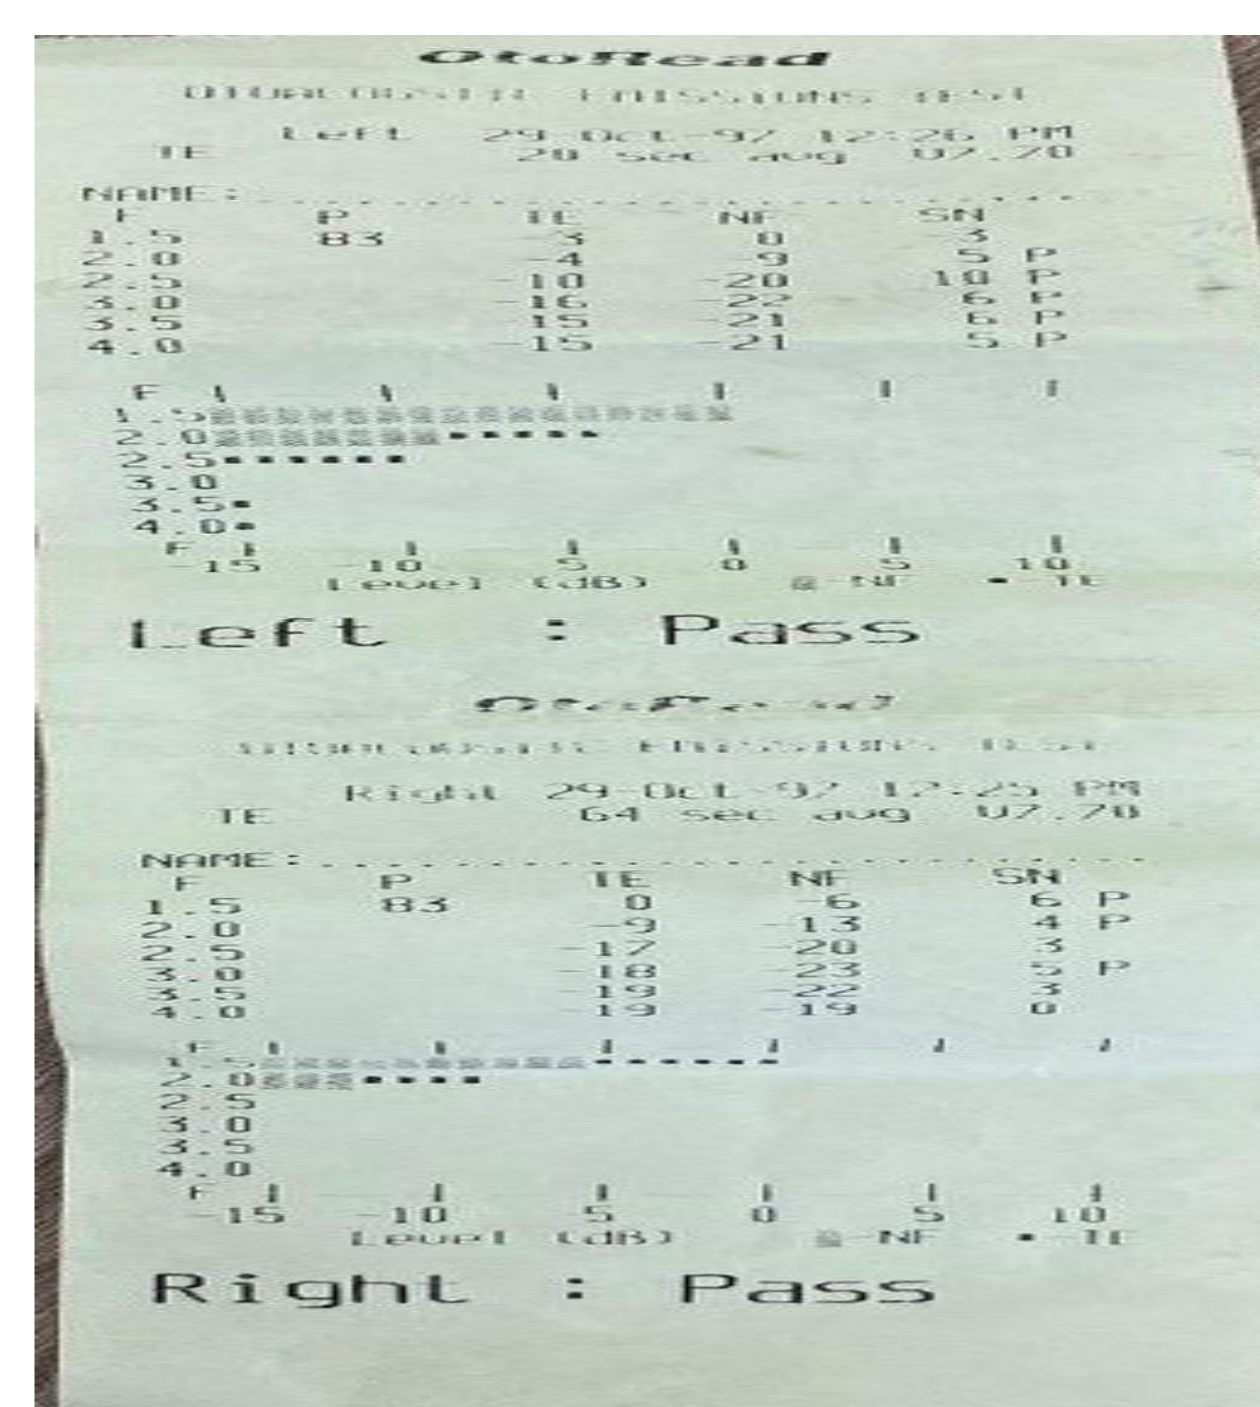 OtoRead
OTOACOUSTIC EMISSIONS TEST
Left 29-Oct-97 12:26 PM
TE 20 sec avg V7.70
NAME:
F P TE NF SN
1.5 83 -3 0 -3
2.0 -4 -9 5 P
2.5 -10 -20 10 P
3.0 -16 -22 6 P
3.5 -15 -21 6 P
4.0 -15 -21 5 P
F
1.5
2.0
2.5
3.0
3.5
4.0
F
-15 -10 -5 0 5 10
Level (dB) -NF -TE
Left : Pass
OtoRead
OTOACOUSTIC EMISSIONS TEST
Right 29-Oct-97 12:25 PM
TE 64 sec avg V7.70
NAME:
F P TE NF SN
1.5 83 0 -6 6 P
2.0 -9 -13 4 P
2.5 -17 -20 3
3.0 -18 -23 5 P
3.5 -19 -22 3
4.0 -19 -19 0
F
1.5
2.0
2.5
3.0
3.5
4.0
F
-15 -10 -5 0 5 10
Level (dB) -NF -TE
Right : Pass